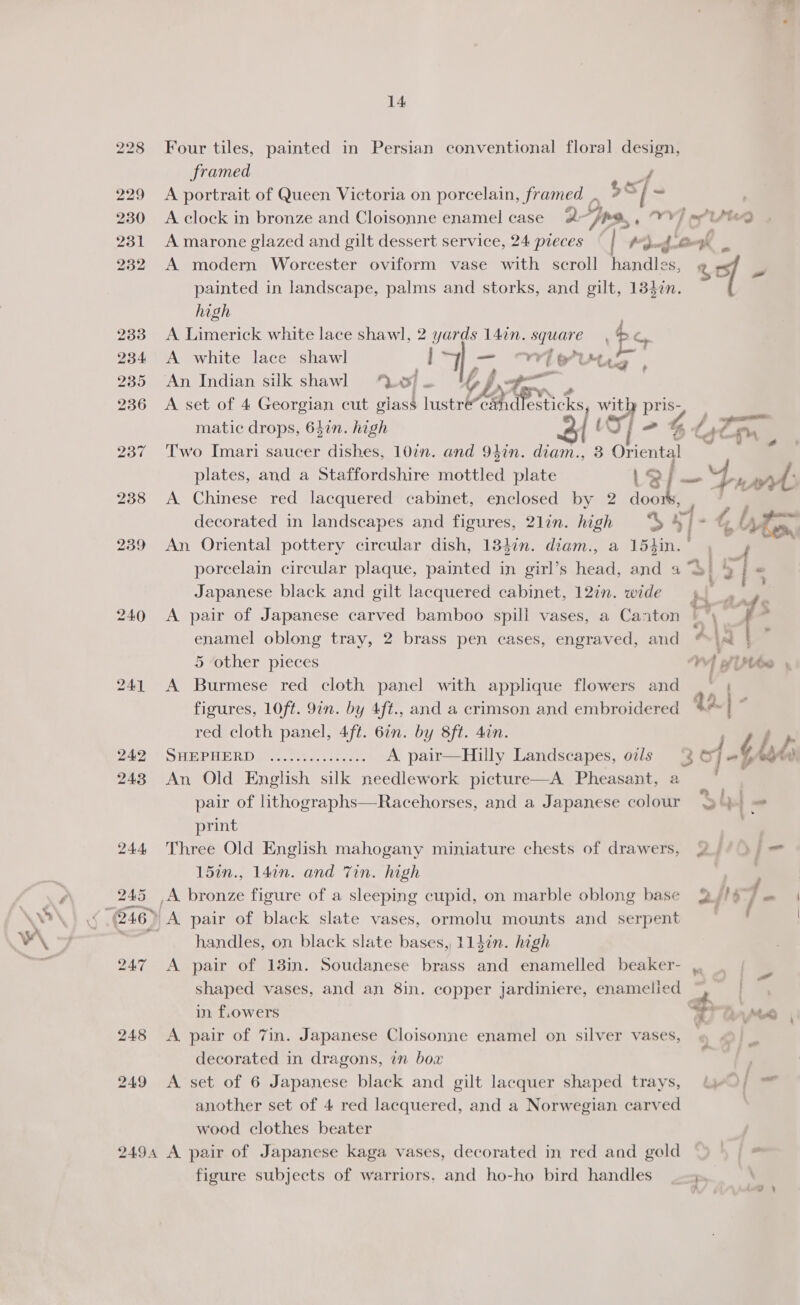 14
228 Four tiles, painted in Persian conventional floral design,
framed
229 A portrait of Queen Victoria on porcelain, framed
230 A clock in bronze and Cloisonne enamel case
231 A marone glazed and gilt dessert service, 24 pieces
232 A modern Worcester oviform vase with scroll handles,
painted in landscape, palms and storks, and gilt, 13½in.
high
233 A Limerick white lace shawl, 2 yards 14in. square
234 A white lace shawl
235 An Indian silk shawl
236 A set of 4 Georgian cut glass lustre candlesticks, with pris-
matic drops, 6½in. high
237 Two Imari saucer dishes, 10in. and 9½in. diam., 3 Oriental
plates, and a Staffordshire mottled plate
238 A Chinese red lacquered cabinet, enclosed by 2 doors,
decorated in landscapes and figures, 21in. high
239 An Oriental pottery circular dish, 13½in. diam., a 15½in.
porcelain circular plaque, painted in girl's head, and a
Japanese black and gilt lacquered cabinet, 12in. wide
240 A pair of Japanese carved bamboo spill vases, a Canton
enamel oblong tray, 2 brass pen cases, engraved, and
5 other pieces
241 A Burmese red cloth panel with applique flowers and
figures, 10ft. 9in. by 4ft., and a crimson and embroidered
red cloth panel, 4ft. 6in. by 8ft. 4in.
242 SHEPHERD ............... A pair—Hilly Landscapes, oils
243 An Old English silk needlework picture—A Pheasant, a
pair of lithographs—Racehorses, and a Japanese colour
print
244 Three Old English mahogany miniature chests of drawers,
15in., 14in. and 7in. high
245 A bronze figure of a sleeping cupid, on marble oblong base
246 A pair of black slate vases, ormolu mounts and serpent
handles, on black slate bases, 11½in. high
247 A pair of 13in. Soudanese brass and enamelled beaker-
shaped vases, and an 8in. copper jardiniere, enamelled
in flowers
248 A pair of 7in. Japanese Cloisonne enamel on silver vases,
decorated in dragons, in box
249 A set of 6 Japanese black and gilt lacquer shaped trays,
another set of 4 red lacquered, and a Norwegian carved
wood clothes beater
249A A pair of Japanese kaga vases, decorated in red and gold
figure subjects of warriors, and ho-ho bird handles